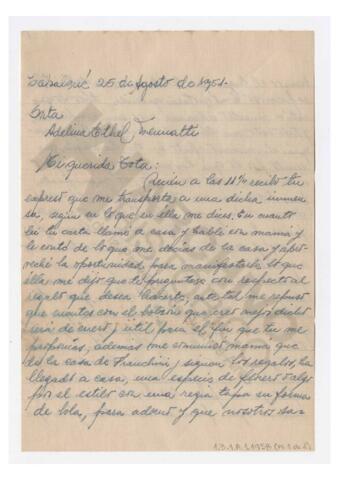 25 de Agosto de 1951.-
Srta
Adelina Ethel
Mi querida Tota:
Recién a las 11 ½ recibo tu
expreso que me transporta a una dicha inmen
sa, según en lo que en ella me dices. En cuanto
leí tu carta llamé a casa y hablé con mamá y
le conté de lo que me decías de la casa y apro-
veché la oportunidad para manifestarle lo que
ella me dijo que te preguntara con respecto al
regalo que desea hacerte, ante tal me repuso
que cuentes con el bolsón que creo mejor dicho
será de cuero y útil para el fin que tú me
propones, además me comunicó mamá que
de la casa de Franchini y siguen los regalos, ha
llegado a casa, una especie de florero o algo
por el estilo con una regia tapa en forma
de bola, para adorno y que nosotros sa-